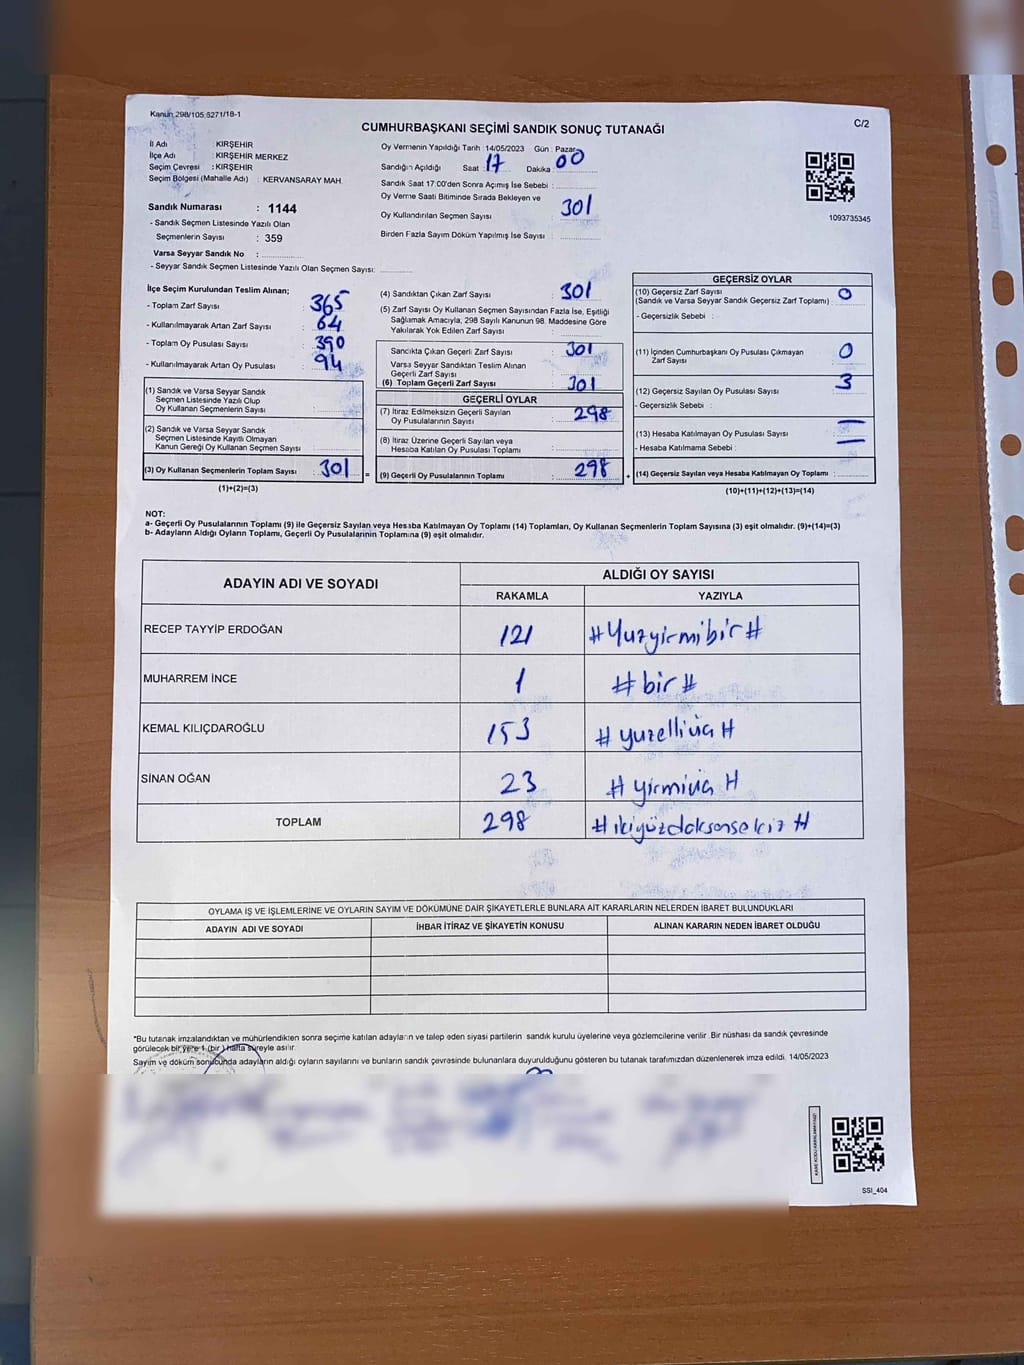 Kanun 298/105,6271/18-1
C/2
CUMHURBAŞKANI SEÇİMİ SANDIK SONUÇ TUTANAĞI
İl Adı : KIRŞEHİR
İlçe Adı : KIRŞEHİR MERKEZ
Seçim Çevresi : KIRŞEHİR
Seçim Bölgesi (Mahalle Adı) : KERVANSARAY MAH.
Sandık Numarası : 1144
- Sandık Seçmen Listesinde Yazılı Olan
Seçmenlerin Sayısı : 359
Varsa Seyyar Sandık No :
- Seyyar Sandık Listesinde Yazılı Olan Seçmen Sayısı:
Oy Vermenin Yapıldığı Tarih : 14/05/2023 Gün : Pazar
Sandığın Açıldığı Saat : 17 Dakika 00
Sandık Saat 17:00'den Sonra Açımış İse Sebebi :
Oy Verme Saati Bitiminde Sırada Bekleyen ve
Oy Kullandırılan Seçmen Sayısı : 301
Birden Fazla Sayım Döküm Yapılmış İse Sayısı :
1093735345
İlçe Seçim Kurulundan Teslim Alınan;
- Toplam Zarf Sayısı : 365
- Kullanılmayarak Artan Zarf Sayısı : 64
- Toplam Oy Pusulası Sayısı : 390
- Kullanılmayarak Artan Oy Pusulası : 94
(1) Sandık ve Varsa Seyyar Sandık
Seçmen Listesinde Yazılı Olup
Oy Kullanan Seçmenlerin Sayısı :
(2) Sandık ve Varsa Seyyar Sandık
Seçmen Listesinde Kayıtlı Olmayan
Kanun Gereği Oy Kullanan Seçmen Sayısı :
(3) Oy Kullanan Seçmenlerin Toplam Sayısı : 301
(1)+(2)=(3)
=
(4) Sandıktan Çıkan Zarf Sayısı : 301
(5) Zarf Sayısı Oy Kullanan Seçmen Sayısından Fazla İse, Eşitliği
Sağlamak Amacıyla, 298 Sayılı Kanunun 98. Maddesine Göre
Yakılarak Yok Edilen Zarf Sayısı :
Sandıkta Çıkan Geçerli Zarf Sayısı : 301
Varsa Seyyar Sandıktan Teslim Alınan
Geçerli Zarf Sayısı :
(6) Toplam Geçerli Zarf Sayısı : 301
GEÇERLİ OYLAR
(7) İtiraz Edilmeksizin Geçerli Sayılan
Oy Pusulalarının Sayısı : 298
(8) İtiraz Üzerine Geçerli Sayılan veya
Hesaba Katılan Oy Pusulası Toplamı :
(9) Geçerli Oy Pusulalarının Toplamı : 298
+
GEÇERSİZ OYLAR
(10) Geçersiz Zarf Sayısı
(Sandık ve Varsa Seyyar Sandık Geçersiz Zarf Toplamı) : 0
- Geçersizlik Sebebi :
(11) İçinden Cumhurbaşkanı Oy Pusulası Çıkmayan
Zarf Sayısı : 0
(12) Geçersiz Sayılan Oy Pusulası Sayısı : 3
- Geçersizlik Sebebi :
(13) Hesaba Katılmayan Oy Pusulası Sayısı : —
- Hesaba Katılmama Sebebi : —
(14) Geçersiz Sayılan veya Hesaba Katılmayan Oy Toplamı :
(10)+(11)+(12)+(13)=(14)
NOT:
a- Geçerli Oy Pusulalarının Toplamı (9) ile Geçersiz Sayılan veya Hesaba Katılmayan Oy Toplamı (14) Toplamları, Oy Kullanan Seçmenlerin Toplam Sayısına (3) eşit olmalıdır. (9)+(14)=(3)
b- Adayların Aldığı Oyların Toplamı, Geçerli Oy Pusulalarının Toplamına (9) eşit olmalıdır.
ADAYIN ADI VE SOYADI
ALDIĞI OY SAYISI
RAKAMLA YAZIYLA
RECEP TAYYİP ERDOĞAN 121 #Yuzyirmibir#
MUHARREM İNCE 1 #bir#
KEMAL KILIÇDAROĞLU 153 #yuzelliüç#
SİNAN OĞAN 23 #yirmiüç#
TOPLAM 298 #ikiyüzdoksansekiz#
OYLAMA İŞ VE İŞLEMLERİNE VE OYLARIN SAYIM VE DÖKÜMÜNE DAİR ŞİKAYETLERLE BUNLARA AİT KARARLARIN NELERDEN İBARET BULUNDUKLARI
ADAYIN ADI VE SOYADI İHBAR İTİRAZ VE ŞİKAYETİN KONUSU ALINAN KARARIN NEDEN İBARET OLDUĞU
*Bu tutanak imzalandıktan ve mühürlendikten sonra seçime katılan adayların ve talep eden siyasi partilerin sandık kurulu üyelerine veya gözlemcilerine verilir. Bir nüshası da sandık çevresinde
görülecek bir yere 1 (bir) hafta süreyle asılır.
Sayım ve döküm sonucunda adayların aldığı oyların sayılarını ve bunların sandık çevresinde bulunanlara duyurulduğunu gösteren bu tutanak tarafımızdan düzenlenerek imza edildi. 14/05/2023
SSI_404